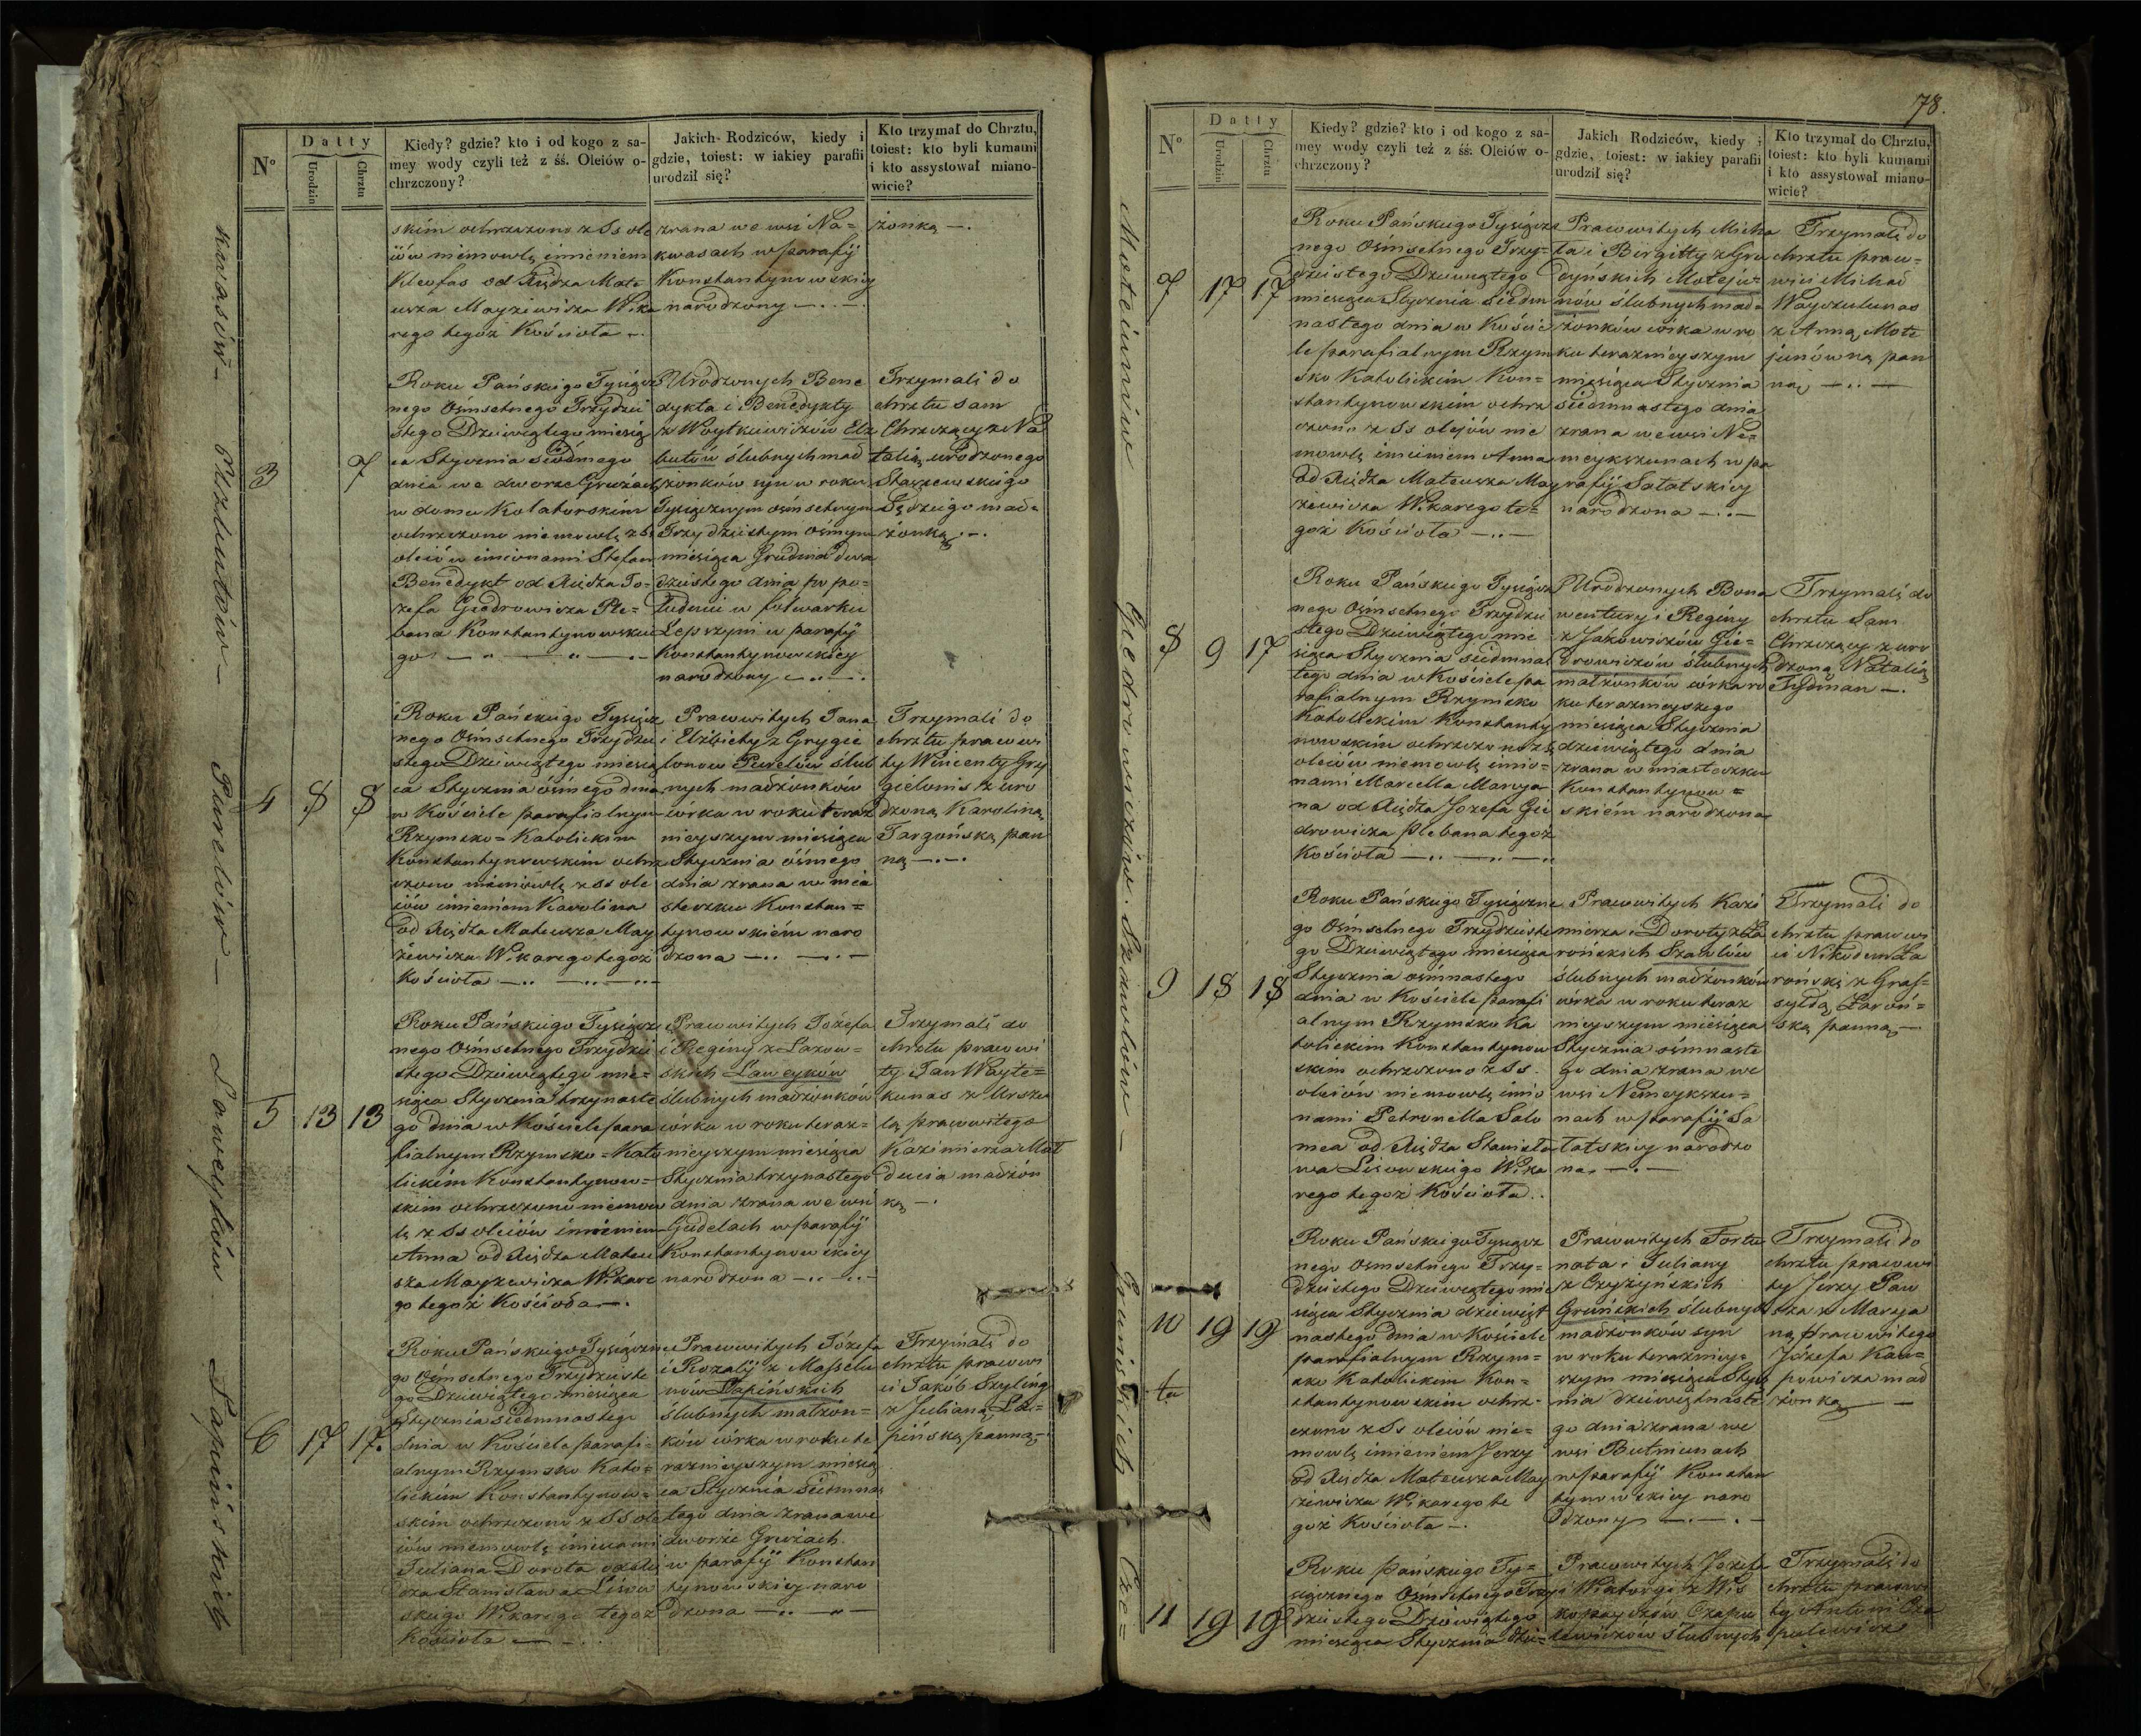 N°
Datty
Urodzin
Chrztu
Kiedy? gdzie? kto i od kogo z sa-
mey wody czyli też z śś. Oleiów o-
chrzczony?
Jakich Rodziców, kiedy i
gdzie, toiest: w iakiey parafii
urodził się?
Kto trzymał do Chrztu,
toiest: kto byli kumami
i kto assystował miano-
wicie?
skim ochrzczono z SS ole
iów niemowlę imieniem
Kleofas od Xiędza Mate
usza Mayzewicza Wika
rego tegoż Kościoła
zrana we wsi Na=
kwasach w parafij
Konstantynowskiey
narodzony
żonką
3
7
Roku Pańskiego Tysiącz
nego Ośmsetnego Trzydzie
stego Dziewiątego miesią
ca Stycznia siódmego
dnia we dworze Grużach
w domu Kolatorskim
ochrzczono niemowlę z SS
oleiów imionami Stefan
Benedykt od Xiędza Jo=
zefa Giedrowicza Ple=
bana Konstantynowskie
go
Urodzonych Bene
dykta i Benedykty
z Woytkiewiczów Elz
butów ślubnych mał
żonków syn w roku
Tysiącznym ośmsetnym
Trzydziestym Ośmym
miesiąca Grudnia dwa
dziestego dnia po po=
łudniu w folwarku
Lepszyni w parafij
Konstantynowskiey
narodzony
Trzymali do
chrztu sam
Chrzczący z Na
talią urodzonego
Staszewskiego
Sędziego mał=
żonką
4
8
8
Roku Pańskiego Tysiącz
nego Ośmsetnego Trzydzie
stego Dziewiątego miesią
ca Stycznia ósmego dnia
w Kościele parafialnym
Rzymsko=Katolickim
Konstantynowskim ochrz
czono niemowlę z SS ole
iów imieniem Karolina
od Xiędza Mateusza May
żewicza Wikarego tegoż
Kościoła
Prawowitych Jana
i Elżbiety z Grygie
lonow Purelów ślub
nych małżonków
córka w roku teraz
nieyszym miesiąca
Stycznia ósmego
dnia zrana w mia
steczku Konstan=
tynowskiém naro
dzona
Trzymali do
chrztu prawowi
ty Wincenty Gry
gielonis z uro
dzoną Karoliną
Targońską pan
ną
5
13
13
Roku Pańskiego Tysiącz
nego Ośmsetnego Trzydzie
stego Dziewiątego mie=
siąca Stycznia trzynaste
go dnia w Kościele para
fialnym Rzymsko=Kato
lickim Konstantynow=
skim ochrzczono niemow
lę z SS oleiów imieniem
Anna od Xiędza Mateu
sza Mayzewicza Wikare
go tegoż Kościoła
Prawowitych Józefa
i Reginy z Lazow=
skich Ławeyków
ślubnych małżonków
córka w roku teraz=
nieyszym miesiąca
Stycznia trzynastego
dnia zrana we wsi
Gudelach w parafij
Konstantynowskiey
narodzona
Trzymali do
chrztu prawowi
ty Jan Woyte=
kunas z Urszu
lą prawowitego
Kazimierza Mat
ducia małżon
ką
6
17
17.
Roku Pańskiego Tysiączne
go Ośmsetnego Trzydzieste
go Dziewiątego miesiąca
Stycznia siedmnastego
dnia w Kościele parafi=
alnym Rzymsko Kato=
lickim Konstantynow=
skim ochrzczono z SS ole
iów niemowlę imionami
Juliana Dorota od Xię
dza Stanisława Lisow
skiego Wikarego tegoż
Kościoła
Prawowitych Józefa
i Rozalij z Masselu
nów Łapińskich
ślubnych małżon=
ków córka w roku te
raznieyszym miesią
ca Stycznia siedmnas
tego dnia zrana we
dworze Grużach
w parafij Konstan
tynowskiey naro
dzona
Trzymali do
chrztu prawowi
ci Jakób Szyling
z Julianą Ła=
pińską panną
kwasów — Elzbutów — Purelów — Ławeyków — Łapińskich
78.
N°
Datty
Urodzin
Chrztu
Kiedy? gdzie? kto i od kogo z sa-
mey wody czyli też z śś. Oleiów o-
chrzczony?
Jakich Rodziców, kiedy i
gdzie, toiest: w iakiey parafii
urodził się?
Kto trzymał do Chrztu,
toiest: kto byli kumami
i kto assystował miano-
wicie?
7
17
17
Roku Pańskiego Tysiącz
nego Ośmsetnego Trzy=
dziestego Dziewiątego
miesiąca Stycznia siedm
nastego dnia w Koście
le parafialnym Rzym
sko Katolickim Kon=
stantynowskim ochrz
czono z SS olejów nie
mowlę imieniem Anna
od Xiędza Mateusza May
żewicza Wikarego te=
goż Kościoła
Prawowitych Micha
ła i Birgitty z Gru
dyńskich Moteju=
nów ślubnych mał=
żonków córka w ro
ku teraznieyszym
miesiąca Stycznia
siedmnastego dnia
zrana we wsi Ne=
meykszunach w pa
rafij Sałatskiey
narodzona
Trzymali do
chrztu prawo=
wici Michał
Woyszulunas
z Anną Mote
junówną pan
ną
8
9
17
Roku Pańskiego Tysiącz
nego Ośmsetnego Trzydzie
stego Dziewiątego mie
siąca Stycznia siedmnas
tego dnia w Kościele pa
rafialnym Rzymsko
Katolickim Konstanty
nowskim ochrzczono z SS
oleiów niemowlę imio=
nami Marcella Marya
na od Xiędza Jozefa Gie
drowicza Plebana tegoż
Kościoła
Urodzonych Bona
wentury i Reginy
z Jazowiczów Gie=
drowiczów ślubnych
małżonków córka ro
ku teraznieyszego
miesiąca Stycznia
dziewiątego dnia
zrana w miasteczku
Konstantynow=
skiém narodzona
Trzymali do
chrztu Sam
Chrzczący z uro
dzoną Natalią
Tydman
9
18
18
Roku Pańskiego Tysiączne
go Ośmsetnego Trzydzieste
go Dziewiątego miesiąca
Stycznia ośmnastego
dnia w Kościele parafi
alnym Rzymsko Ka
tolickim Konstantynow
skim ochrzczono z SS.
oleiów niemowlę imio
nami Petronella Salo
mea od Xiędza Stanisła
wa Lisowskiego Wika
rego tegoż Kościoła
Prawowitych Kazi
mierza i Doroty z Ła
rońskich Szawlów
ślubnych małżonków
córka w roku teraz
nieyszym miesiąca
Stycznia ośmnaste
go dnia zrana we
wsi Nemeykszu=
nach w parafij Sa
łatskiey narodzo
na
Trzymali do
chrztu prawowi
ci Nikodem Ła
roński z Graf=
syldą Łaroń=
ską panną
10
19
19
tu
Roku Pańskiego Tysiącz
nego Ośmsetnego Trzy=
dziestego Dziewiątego mie
siąca Stycznia dziewięt
nastego dnia w Kościele
parafialnym Rzym=
sko Katolickim Kon=
stantynowskim ochrz=
czono z SS oleiów nie=
mowlę imieniem Jerzy
od Xiędza Mateusza May
żewicza Wikarego te
goż Kościoła
Prawowitych Fortu
nata i Juliany
z Czyżyńskich
Gruńskich ślubnych
małżonków syn
w roku teraźniey=
szym miesiąca Stycz
nia dziewiętnaste
go dnia zrana we
wsi Butniunach
w parafij Konstan
tynowskiey naro
dzony
Trzymali do
chrztu prawowi
ty Jerzy Paw
sza z Marya
ną prawowitego
Józefa Kar=
powicza mał
żonką
11
19
19
Roku Pańskiego Ty=
siącznego Ośmsetnego Trzy
dziestego Dziewiątego
miesiąca Stycznia dzie=
Prawowitych Jozefa
i Wiktoryi z Wis
kopayczów Czapu
lewiczów ślubnych
Trzymali do
chrztu prawowi
ty Antoni Cza
pulewicz
Moteiunów Giedrowiczów. Szawlów — Gruńskich Cza=